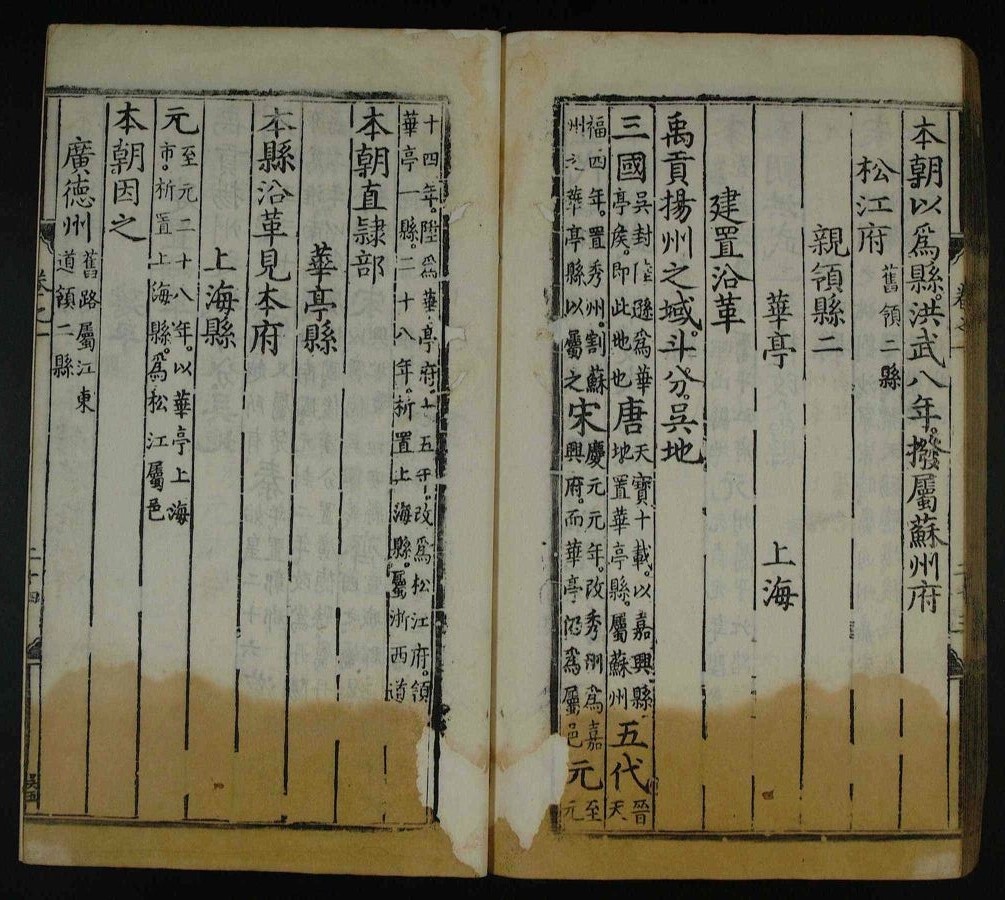 本朝以爲縣。洪武八年。撥屬蘇州府
松江府 舊領二縣
親領縣二
華亭 上海
建置沿革
禹貢揚州之域。斗分。吳地
三國 吳封陸遜爲華亭侯。即此地也 唐 天寶十載。以嘉興縣地置華亭縣。屬蘇州 五代 晉天
福四年。置秀州。割蘇州之華亭縣以屬之 宋 慶元元年。改秀州爲嘉興府。而華亭仍爲屬邑 元 至元
十四年。陞爲華亭府。十五年。改爲松江府。領華亭一縣。二十八年。析置上海縣。屬浙西道
本朝直隸部
華亭縣
本縣沿革見本府
上海縣
元 至元二十八年。以華亭上海市。析置上海縣。爲松江屬邑
本朝因之
廣德州 舊路屬江東道領二縣
卷之一
二十四